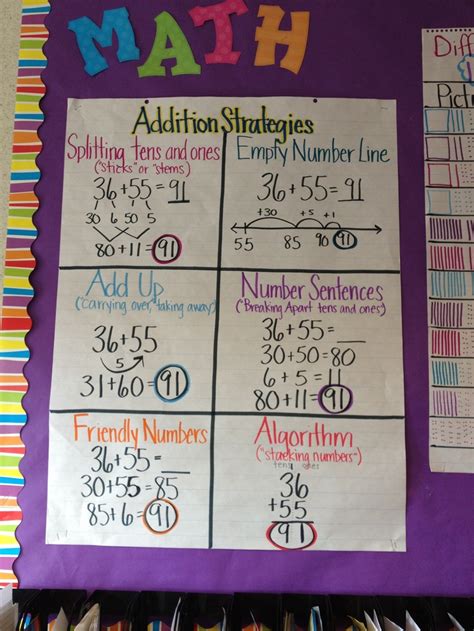 MATH
Addition Strategies
Splitting tens and ones
("sticks" or "stems")
36+55=91
30 6 50 5
80+11=91
Empty Number Line
36+55=91
+30 +5 +1
55 85 90 91
Add Up
("carrying over," taking away")
36+55
5
31+60=91
Number Sentences
("Breaking Apart tens and ones")
36+55=
30+50=80
6+5=11
80+11=91
Friendly Numbers
36+55=
30+55=85
85+6=91
Algorithm
("stacking numbers")
tens ones
36
+55
91
Diff
Pictu